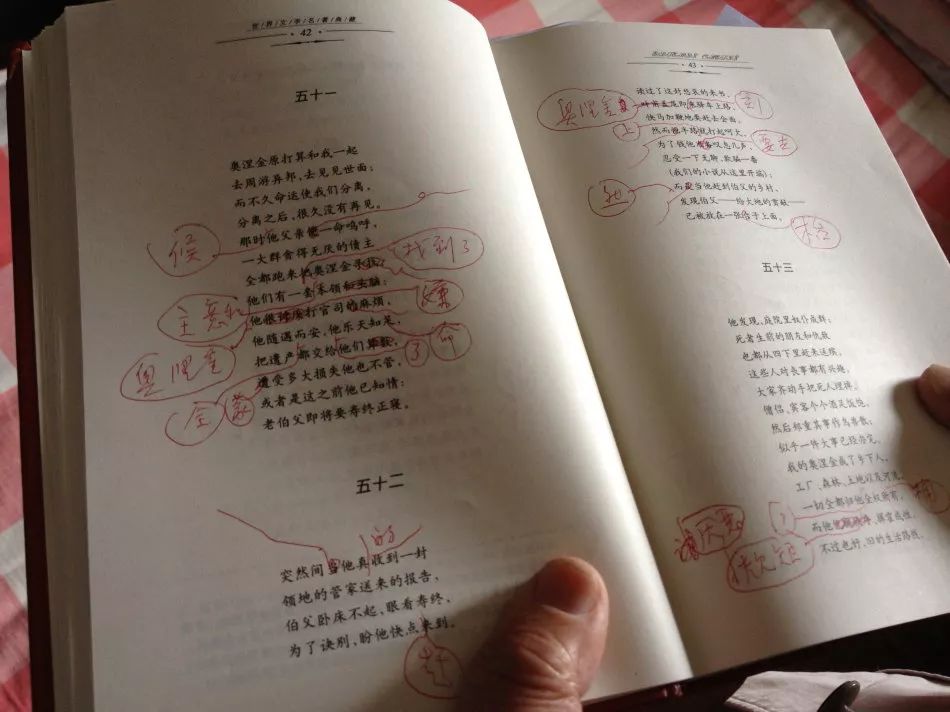 世界文学名著典藏
42
五十一
奥涅金原打算和我一起
去周游异邦,去见见世面;
而不久命运使我们分离,
分离之后,很久没有再见。
那时他父亲便一命呜呼,
一大群贪得无厌的债主
全都跑来把奥涅金寻找,
他们有一套本领和头脑;
他很讨厌打官司的麻烦,
他随遇而安,他乐天知足,
把遗产都交给他们
遭受多大损失他也不管,
或者是这之前他已知情:
老伯父即将要寿终正寝。
候
找到了
主意和
嫌
奥涅金
了
命
全
五十二
突然间 他真收到一封
领地的管家送来的报告,
伯父卧床不起,眼看寿终,
为了诀别,盼他快点来到。
的
赶
43
读过了这封悲哀的来书,
即乘驿车上路,
快马加鞭地要赶去会面,
然而 半路就打起呵欠,
为了钱他 叹息几声,
忍受一下无聊、欺骗一番
(我们的小说从这里开端);
而 当他赶到伯父的乡村,
发现伯父——给大地的贡献——
已被放在一张 子上面。
奥涅金
刻
上
要去
他
五十三
他发现,庭院里奴仆成群;
死者生前的朋友和仇敌
也都从四下里赶来送殡,
这些人对丧事都有兴趣,
大家齐动手把死人埋掉。
僧侣、宾客个个酒足饭饱,
然后郑重其事作鸟兽散;
似乎一件大事已经办完。
我的奥涅金成了乡下人,
工厂、森林、土地以及河流,
一切全都归他全权所有,
而他 挥霍成性,
不过也好,旧的生活路线,
厌恶
秩序